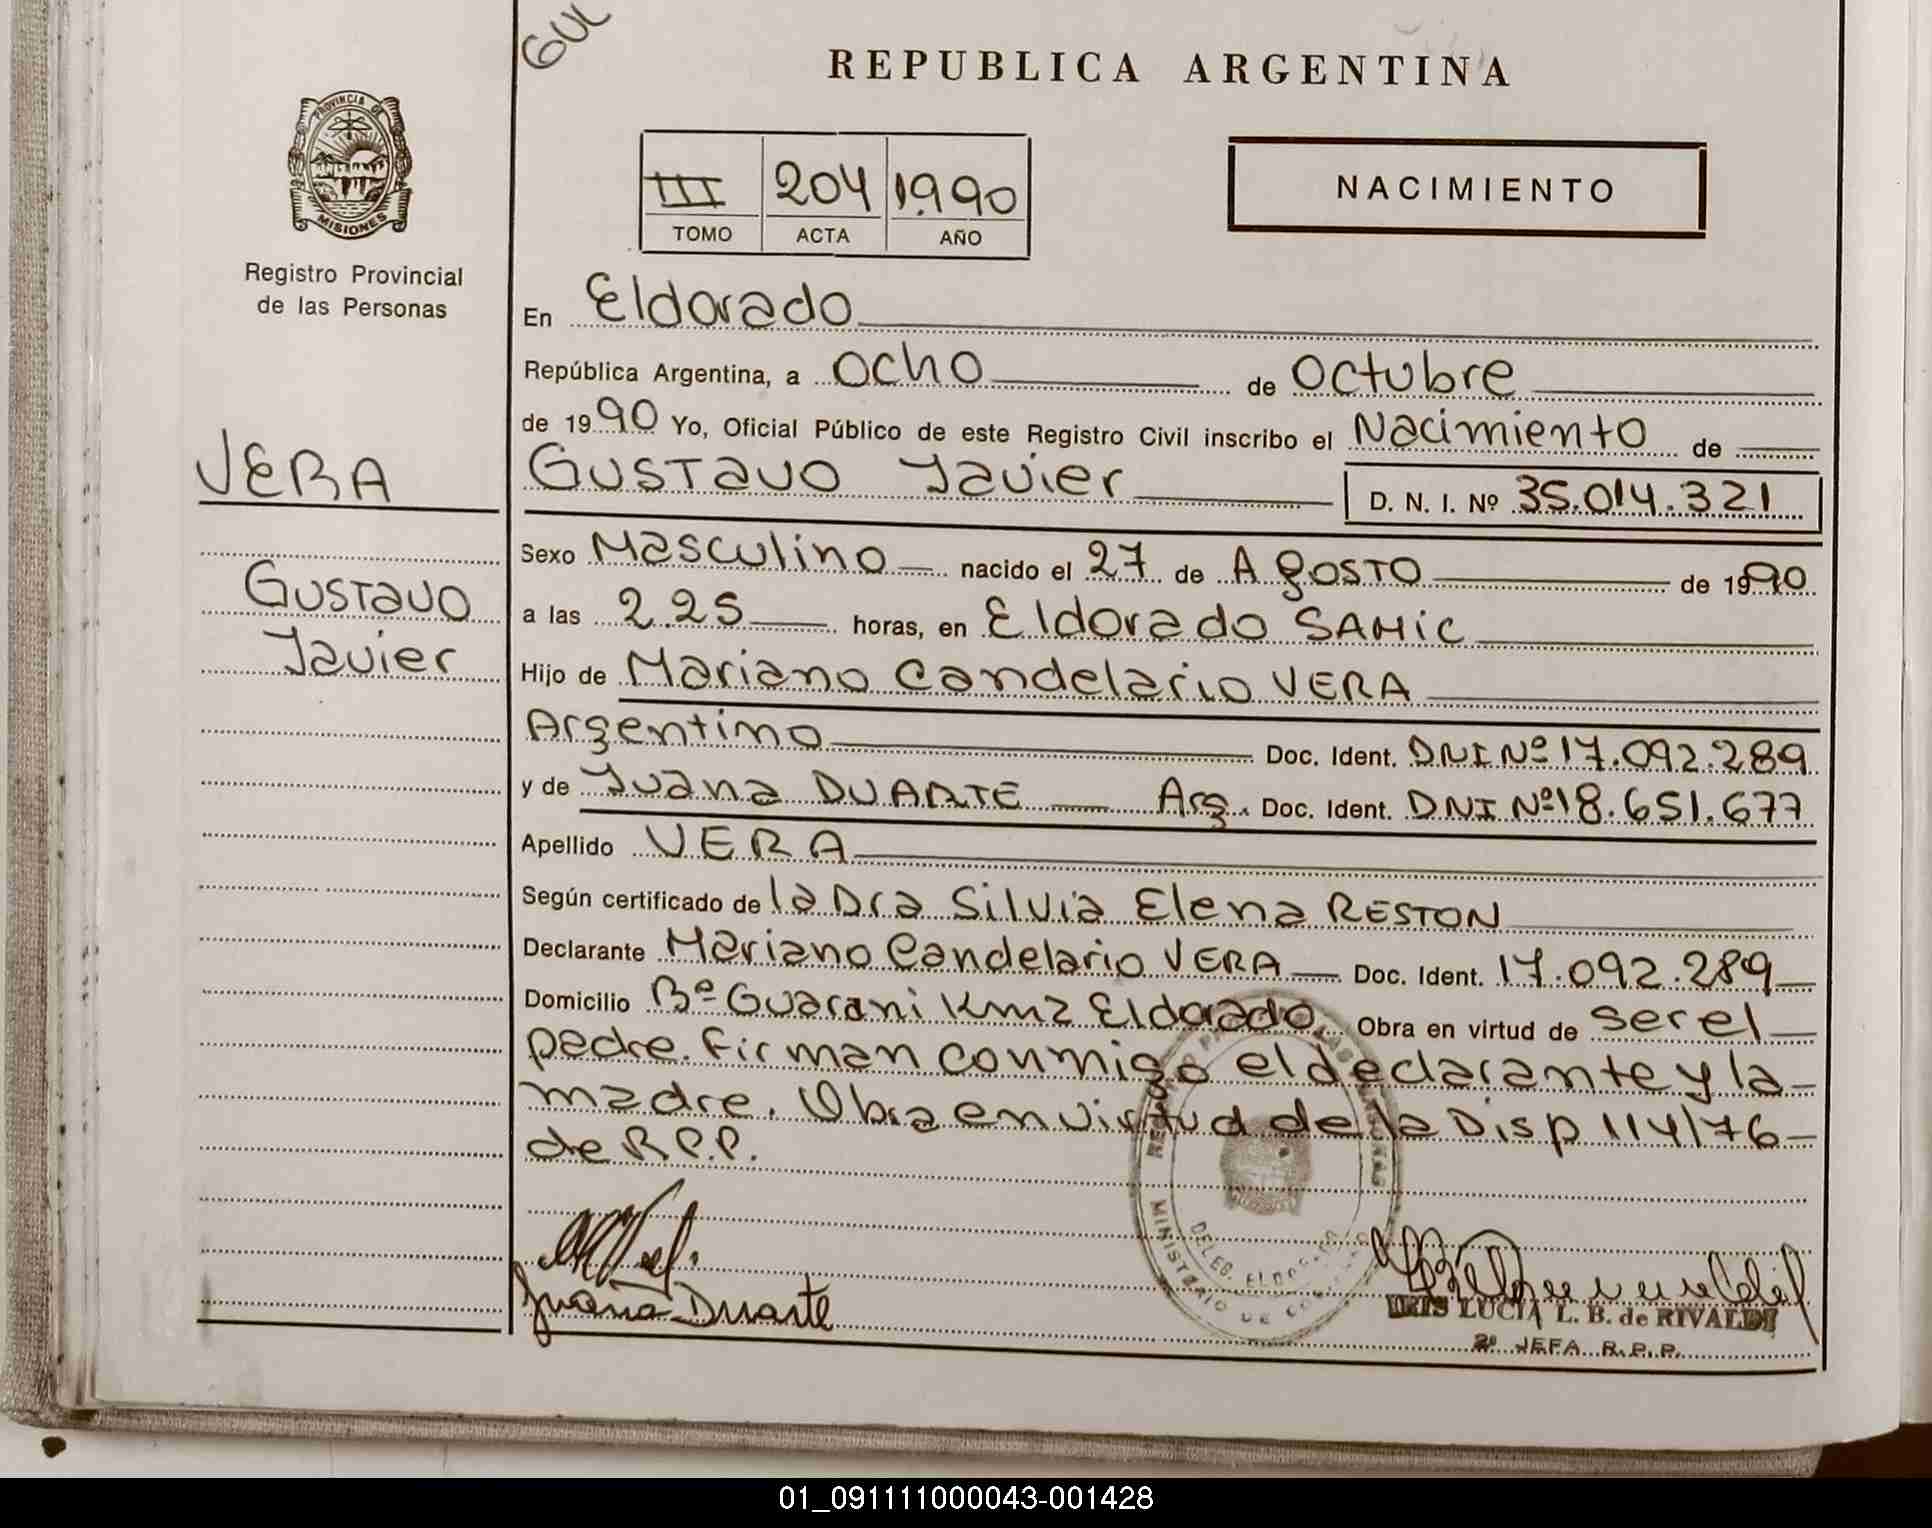 GUL
REPUBLICA ARGENTINA
PROVINCIA DE
MISIONES
Registro Provincial
de las Personas
III 204 1.990
TOMO ACTA AÑO
NACIMIENTO
En Eldorado
República Argentina, a ocho de octubre
de 1990 Yo, Oficial Público de este Registro Civil inscribo el Nacimiento de
VERA
Gustavo Javier D. N. I. Nº 35.014.321
Sexo Masculino nacido el 27 de Agosto de 1990
Gustavo
Javier
a las 2.25 horas, en Eldorado SAMIC
Hijo de Mariano Candelario VERA
Argentino Doc. Ident. DNI Nº 17.092.289
y de Juana DUARTE Arg. Doc. Ident. DNI Nº 18.651.677
Apellido VERA
Según certificado de la Dra Silvia Elena RESTON
Declarante Mariano Candelario VERA Doc. Ident. 17.092.289
Domicilio Bº Guarani Km 2 Eldorado. Obra en virtud de ser el
padre. Firman conmigo el declarante y la
madre. Obra en virtud de la Disp 114/76
de R.P.P.
DELEG. ELDORADO
MINISTERIO DE
Juana Duarte
IRIS LUCIA L. B. de RIVALDI
2º JEFA R.P.P.
01_091111000043-001428